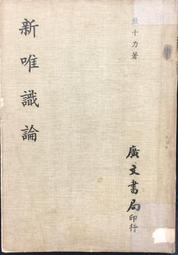 熊十力著
新唯識論
廣文書局印行